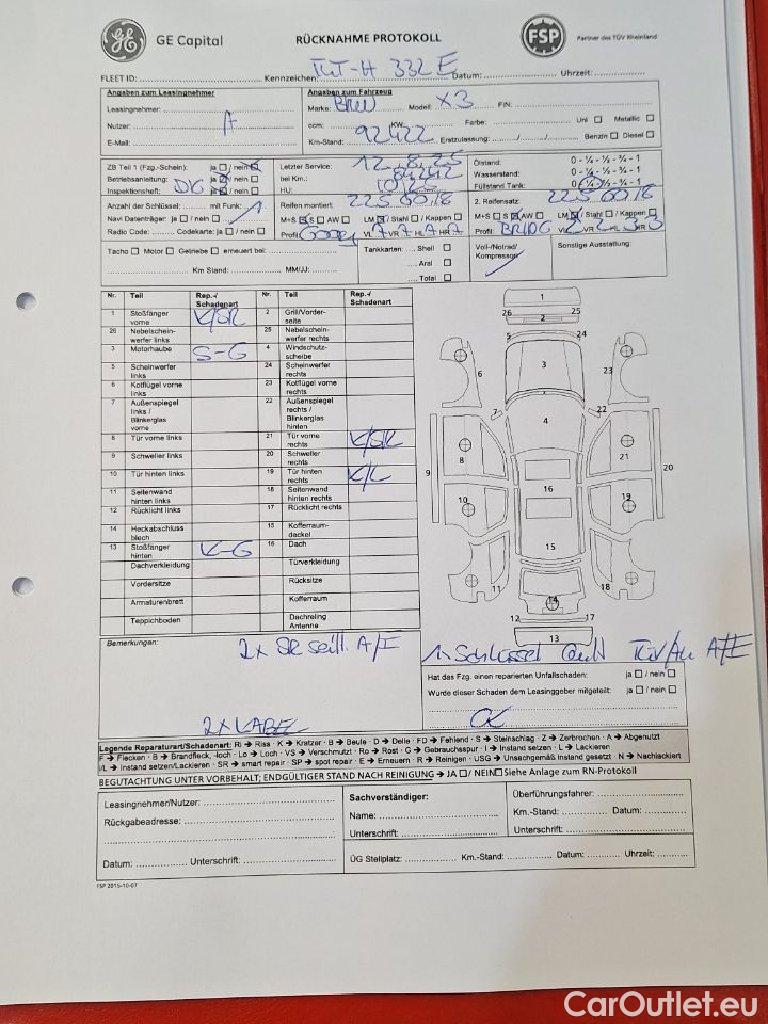 GE Capital
RÜCKNAHME PROTOKOLL
FSP
Partner des TÜV Rheinland
FLEET ID: Kennzeichen: TUT-H 332E Datum: Uhrzeit:
Angaben zum Leasingnehmer
Leasingnehmer:
Nutzer: A
E-Mail:
Angaben zum Fahrzeug
Marke: BMW Modell: X3 FIN:
ccm: KW: Farbe: Uni Metallic
Km-Stand: 92422 Erstzulassung: / / Benzin Diesel
ZB Teil 1 (Fzg.-Schein): ja / nein
Betriebsanleitung: ja / nein
Inspektionsheft: DIG ja / nein
Letzter Service: 12.8.25
bei Km.: 84242
HU:
Ölstand: 0 - ¼ - ½ - ¾ - 1
Wasserstand: 0 - ¼ - ½ - ¾ - 1
Füllstand Tank: 0 - ¼ - ½ - ¾ - 1
Anzahl der Schlüssel: mit Funk: 1
Navi Datenträger: ja / nein
Radio Code: Codekarte: ja / nein
Reifen montiert: 225 60 18
M+S S AW LM / Stahl / Kappen
Profil: Goody VL 7 VR 7 HL 7 HR 7
2. Reifensatz: 225 60 18
M+S S AW LM / Stahl / Kappen
Profil: BRIDG VL 2 VR 2 HL 3 HR 3
Tacho Motor Getriebe erneuert bei:
Km Stand: MM/JJ:
Tankkarten: Shell
Aral
Total
Voll-/Notrad/
Kompressor
Sonstige Ausstattung:
Nr. Teil Rep.-/ Schadenart Nr. Teil Rep.-/ Schadenart
1 Stoßfänger vorne K/SR 2 Grill/Vorder-seite
26 Nebelschein-werfer links 25 Nebelschein-werfer rechts
3 Motorhaube S-G 4 Windschutz-scheibe
5 Scheinwerfer links 24 Scheinwerfer rechts
6 Kotflügel vorne links 23 Kotflügel vorne rechts
7 Außenspiegel links / Blinkerglas vorne 22 Außenspiegel rechts / Blinkerglas hinten
8 Tür vorne links 21 Tür vorne rechts K/SR
9 Schweller links 20 Schweller rechts
10 Tür hinten links 19 Tür hinten rechts K/L
11 Seitenwand hinten links 18 Seitenwand hinten rechts
12 Rücklicht links 17 Rücklicht rechts
14 Heckabschluss blech 15 Kofferraum-deckel
13 Stoßfänger hinten K-G 16 Dach
Dachverkleidung Türverkleidung
Vordersitze Rücksitze
Armaturenbrett Kofferraum
Teppichboden Dachreling Antenne
1
26 2 25
5 24
6 3 23
7 22
4
8 21
9 20
16
10 19
15
11 18
14
12 17
13
Bemerkungen:
2x KABEL
Hat das Fzg. einen reparierten Unfallschaden: ja / nein
Wurde dieser Schaden dem Leasinggeber mitgeteilt: ja / nein
OK
Legende Reparaturart/Schadenart: Ri → Riss · K → Kratzer · B → Beule · D → Delle · FD → Fehlend · S → Steinschlag · Z → Zerbrochen · A → Abgenutzt
F → Flecken · B → Brandfleck, -loch · Lo → Loch · VS → Verschmutzt · Ro → Rost · G → Gebrauchsspur · I → Instand setzen · L → Lackieren
I/L → Instand setzen/Lackieren · SR → smart repair · SP → spot repair · E → Erneuern · R → Reinigen · USG → Unsachgemäß instand gesetzt · N → Nachlackiert
BEGUTACHTUNG UNTER VORBEHALT; ENDGÜLTIGER STAND NACH REINIGUNG → JA / NEIN Siehe Anlage zum RN-Protokoll
Leasingnehmer/Nutzer:
Rückgabeadresse:
Datum: Unterschrift:
Sachverständiger:
Name:
Unterschrift:
Überführungsfahrer:
Km.-Stand: Datum:
Unterschrift:
ÜG Stellplatz: Km.-Stand: Datum: Uhrzeit:
FSP 2015-10-07
CarOutlet.eu